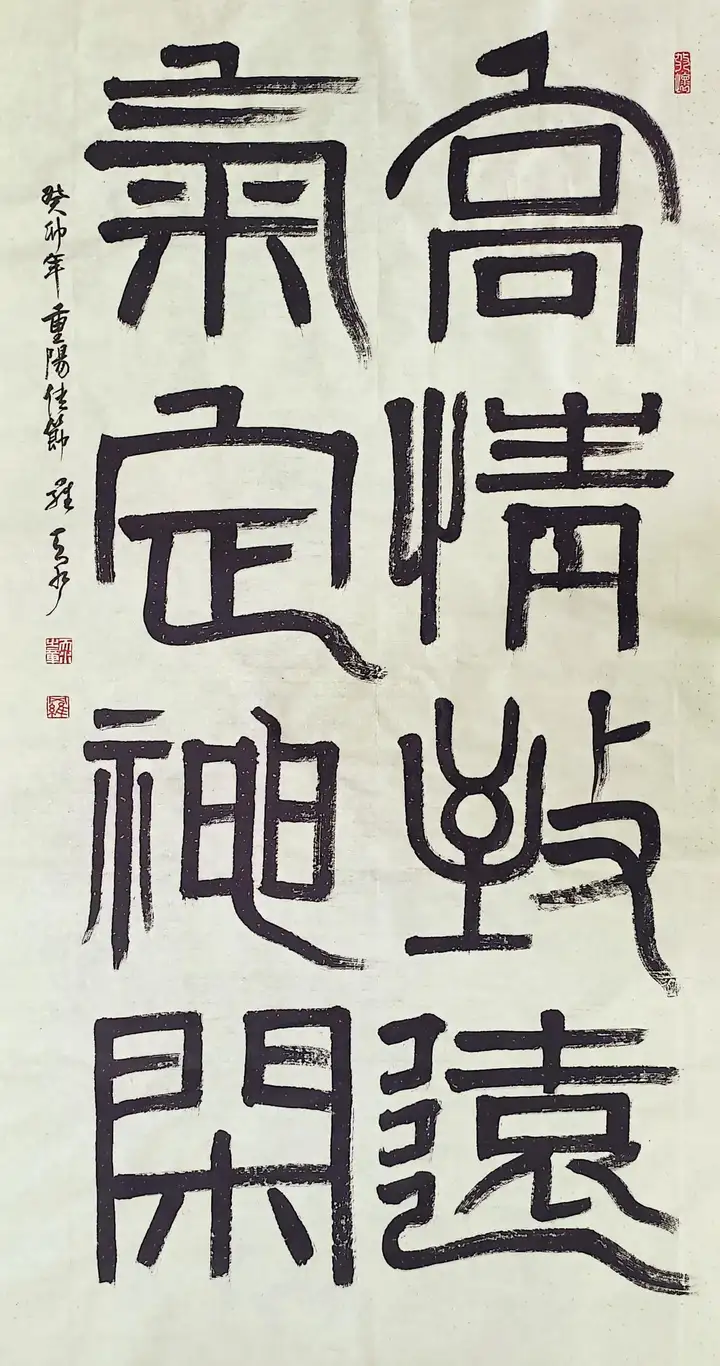 高情致遠
氣定神閑
癸卯年 重陽佳節 羅